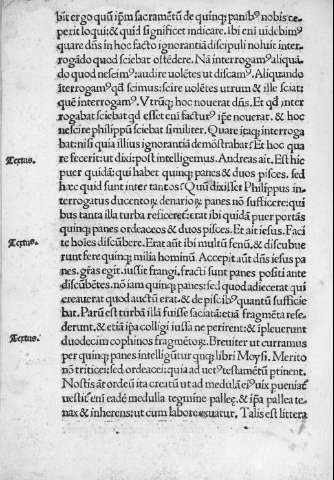 bit ergo quũ ip̃m sacramẽtũ de quinq; panibꝰ nobis cę
perit loqui: & quid significet indicare. Ibi eni uidebimꝰ
quare dñs in hoc facto ignorantiã discipuli noluit inter
rogãdo quod sciebat ostẽdere. Nã interrogamꝰ aliquã
do quod nescimꝰ: audire uolẽtes ut discamꝰ. Aliquando
ĩterrogamꝰ qđ scimus: scire uolẽtes utrum & ille sciat:
quẽ interrogamꝰ. Vtrũq; hoc nouerat dñs. Et qđ inter
rogabat sciebat qđ esset eni facturꝰ ip̃e nouerat. & hoc
nescire philippũ sciebat similiter. Quare itaq; interroga
bat: nisi quia illius ignorantiã demõstrabat: Et hoc qua
re fecerit: ut dixi: post intelligemus. Andreas ait. Est hic
Textus.
puer quidã: qui habet quinq; panes & duos pisces. sed
hęc quid sunt inter tantos: Quũ dixisset Philippus in-
terrogatus ducentoꝝ denarioꝝ panes nõ sufficere: qui
bus tanta illa turba reficeret: erat ibi quidã puer portãs
quinq; panes ordeaceos & duos pisces. Et ait iesus. Faci
te hoĩes discũbere. Erat aũt ibi multũ fenũ. & discubue
Textus.
runt fere quinq; milia hominũ. Accepit aũt dñs iesus pa
nes. gr̃as egit. iussit frangi. fracti sunt panes positi ante
discũbẽtes. nõ iam quinq; panes: sed quod adiecerat qui
creauerat quod auctũ erat. & de piscibꝰ quantũ sufficie
bat. Parũ est turbã illã fuisse saciatã: etiã fragmẽta rese-
derunt. & etiã ip̃a colligi iussa ne perirent: & ĩpleuerunt
Textus.
duodecim cophinos fragmẽtoꝝ. Breuiter ut curramus
per quinq; panes intelligũtur quinq; libri Moysi. Merito
nõ triticei: sed ordeacei: quia ad uetꝰ testamẽtũ ptinent.
Nostis aũt ordeũ ita creatũ ut ad medulã eiꝰ uix pueniat̃
uestit̃ eni eadẽ medulla tegmine palleę. & ip̃a pallea te-
nax & inherens: ut cum labore exuatur. Talis est littera